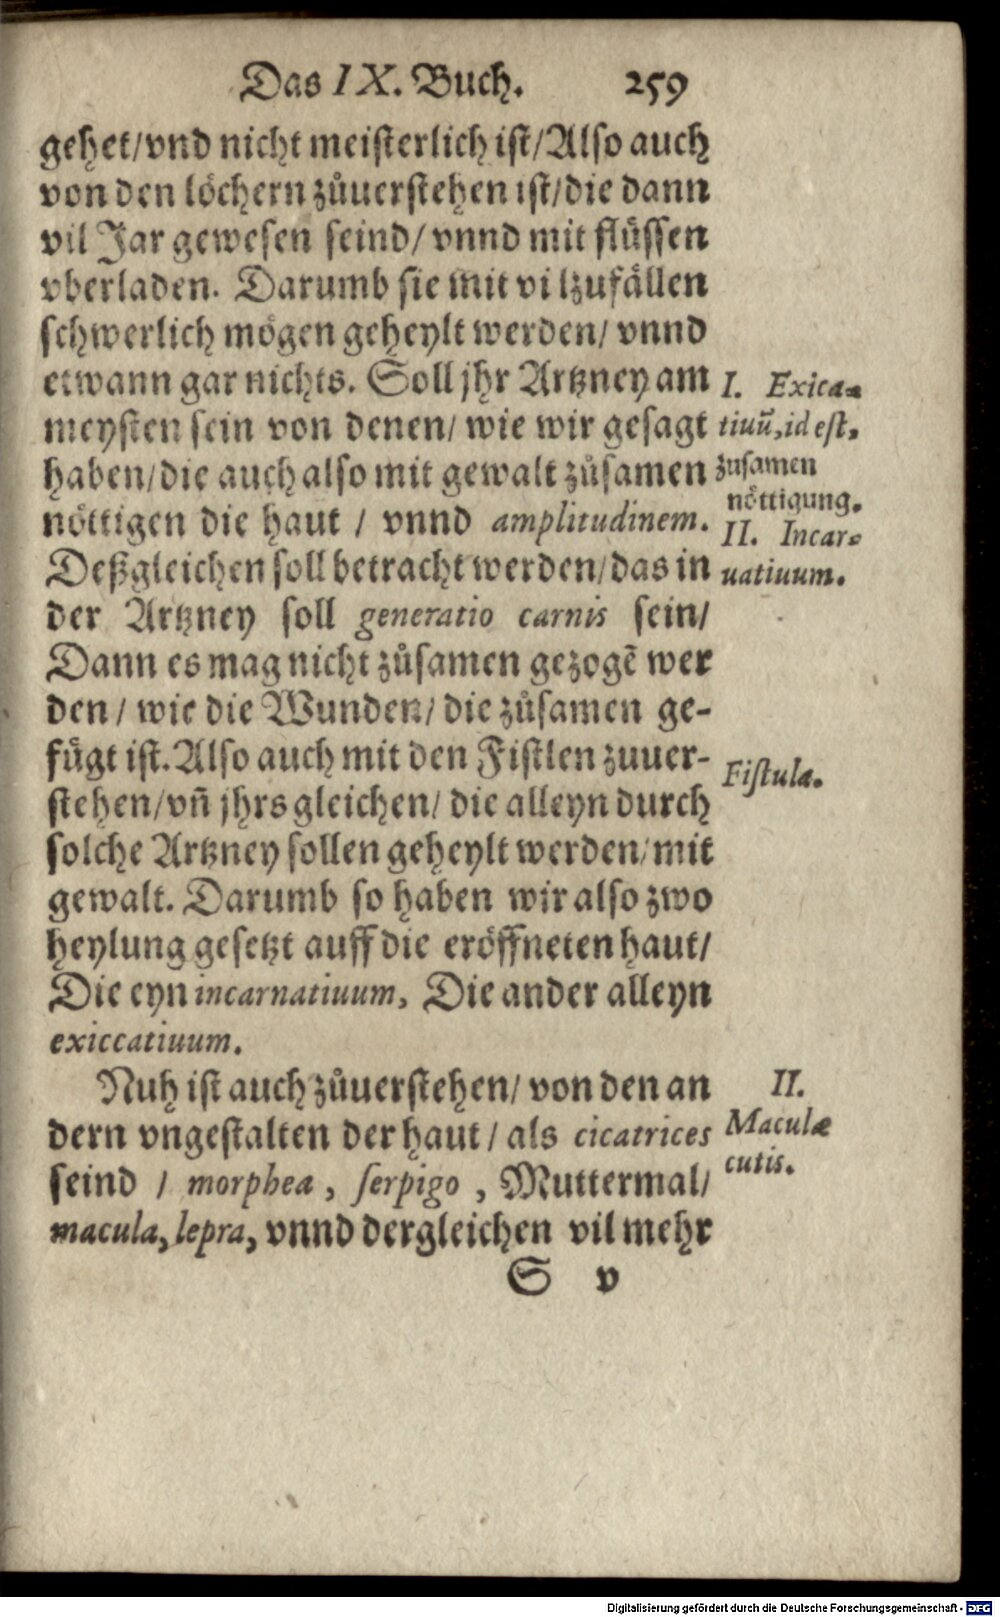 Das IX. Buch. 259
gehet/vnd nicht meisterlich ist/Also auch
von den löchern zůuerstehen ist/die dann
vil Jar gewesen seind/ vnnd mit flüssen
vberladen. Darumb sie mit vi lzufällen
schwerlich mögen geheylt werden/ vnnd
etwann gar nichts. Soll jhr Artzney am
meysten sein von denen/ wie wir gesagt
haben/die auch also mit gewalt zůsamen
nöttigen die haut / vnnd amplitudinem.
Deßgleichen soll betracht werden/das in
der Artzney soll generatio carnis sein/
Dann es mag nicht zůsamen gezogē wer
den / wie die Wunden/ die zůsamen ge-
fügt ist. Also auch mit den Fistlen zuuer-
stehen/vñ jhrs gleichen/ die alleyn durch
solche Artzney sollen geheylt werden/mit
gewalt. Darumb so haben wir also zwo
heylung gesetzt auff die eröffneten haut/
Die eyn incarnatiuum, Die ander alleyn
exiccatiuum.
Nuh ist auch zůuerstehen/ von den an
dern vngestalten der haut / als cicatrices
seind / morphea , serpigo , Muttermal/
macula, lepra, vnnd dergleichen vil mehr
S v
I. Exica-
tiuū, id est,
zusamen
nöttigung.
II. Incar-
uatiuum.
Fistula.
II.
Maculæ
cutis.
Digitalisierung gefördert durch die Deutsche Forschungsgemeinschaft - DFG